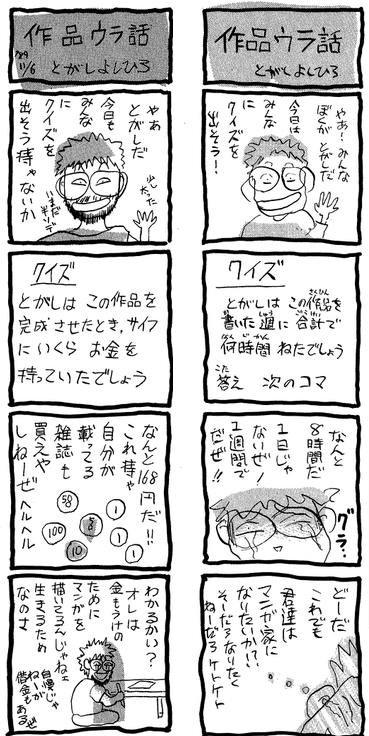 作品ウラ話
とがしよしひろ
やあ!みんな
ぼくがとがしだ
今日は
みんな
に
クイズを
出そう!
クイズ
とがしはこの作品を
さくひん
書いた週に合計で
か しゅう ごうけい
何時間ねたでしょう
なんじかん
答え 次のコマ
こた
なんと
8時間だ
1日じゃ
ないぜ!
1週間で
だぜ!!
グラ…
どーだ
これでも
君達は
マンガ家に
なりたいか?
そーだろなりたく
ねーだろ ケトケト
作品ウラ話
'89
11/6
とがしよしひろ
やあ
とがしだ
今日も
みんな
に
クイズを
出そう持ゃないか
少したった
いまだ
半ソデ
クイズ
とがしは この作品を
完成させたとき,サイフ
にいくら お金を
持っていたでしょう
なんと168円だ!!!
これ持ゃ
自分が
載ってる
雑誌も
買えや
しねーぜ ヘルヘル
50
1
100
5
1
10
1
わかるかい?
オレは
金もうけの
ために
マンガを
描いてるんじゃねェ
生きるため
なのさ
自慢じゃ
ねーが
借金もあるぜ